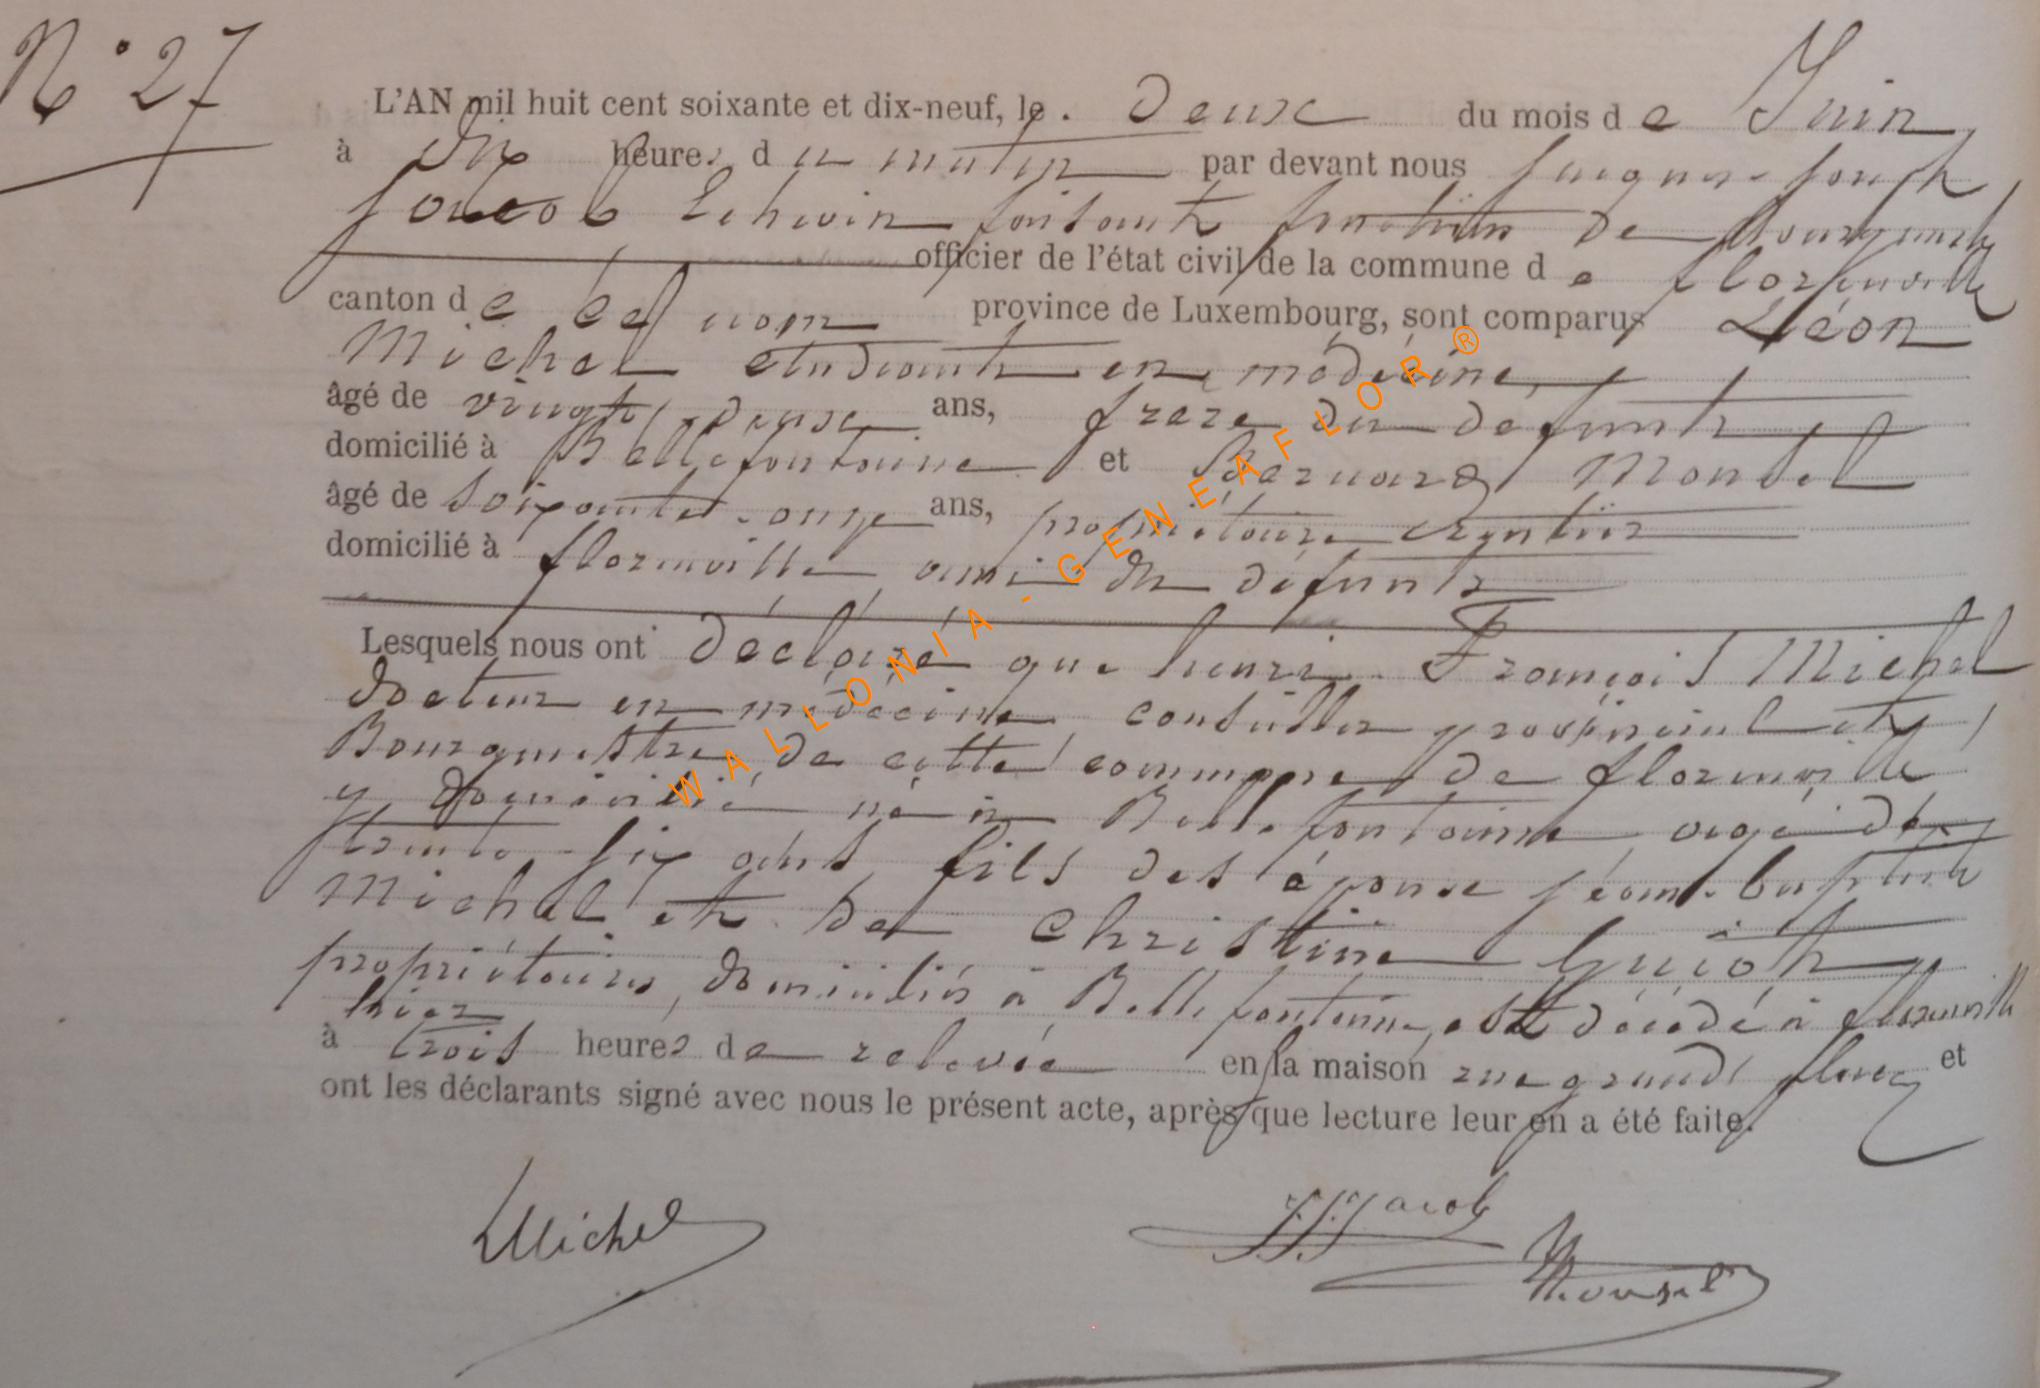 N° 27
L'AN mil huit cent soixante et dix-neuf, le. Deux du mois de Juin
à Dix heures du matin par devant nous Jacques Joseph
Jacob Echevin faisant fonction de Bourgmestre
officier de l'état civil de la commune de Florenville
canton de ce nom province de Luxembourg, sont comparus Léon
Michel étudiant en médecine
âgé de vingt-deux ans, frère du défunt
domicilié à Bellefontaine et Bernard Monsel
âgé de soixante-onze ans, propriétaire rentier
domicilié à florenville, ami du défunt
Lesquels nous ont déclaré que henri François Michel
Docteur en médecine conseiller provincial et
Bourgmestre de cette commune de florenville
y domicilié né à Bellefontaine agé de
trente-six ans, fils des épouse jean-baptiste
Michel et de Christine Guiot
propriétaires, domiciliés à Bellefontaine, est décédé à florenville
hier
à trois heures de relevée en la maison rue grande place et
ont les déclarants signé avec nous le présent acte, après que lecture leur en a été faite.
LMichel
J.J. Jacob
Monsel
WALLONIA-GENEAFLOR®